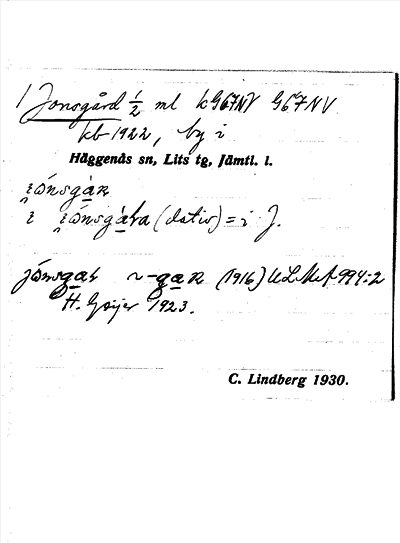 1 Jonsgård ½ ml k G67NV G67NV
kb 1922, by i
Häggenås sn, Lits tg, Jämtl. l.
i̯ónsgaʀ
i i̯ónsgáʀa (dativ) = i J.
jónsgaʀ ~ -gaʀ (1916) ULMA 994:2
H. Geijer 1923.
C. Lindberg 1930.